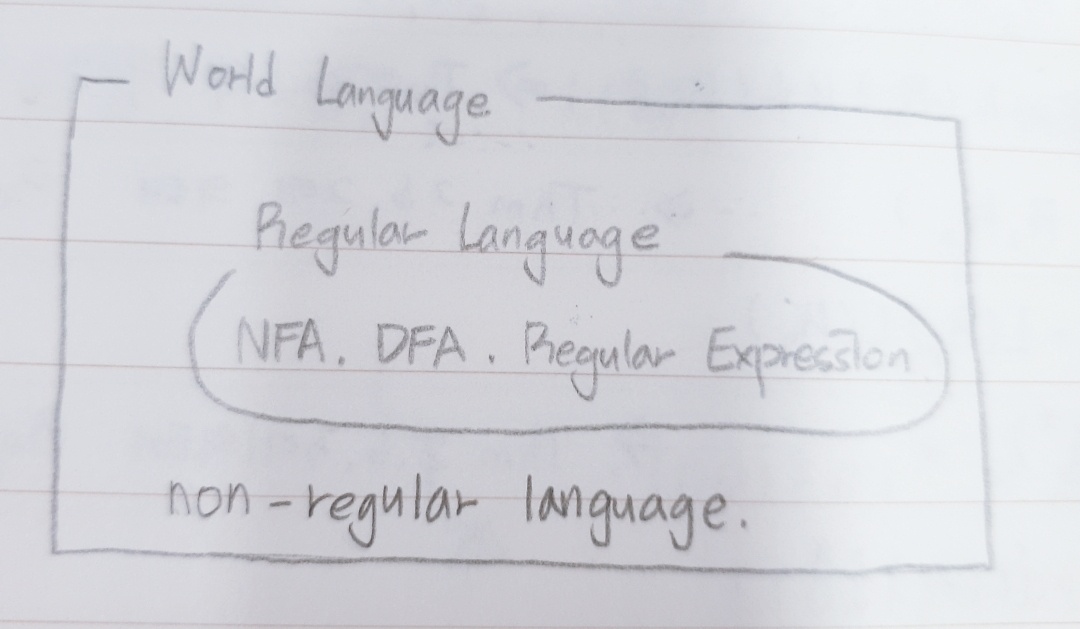 World Language
Regular Language
NFA. DFA. Regular Expression
non-regular language.